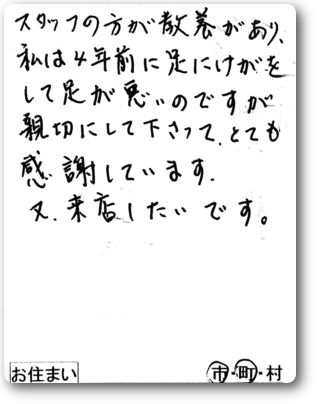 スタッフの方が教養があり、
私は4年前に足にけがを
して足が悪いのですが
親切にして下さって、とても
感謝しています.
又、来店したいです。
お住まい 市・町・村